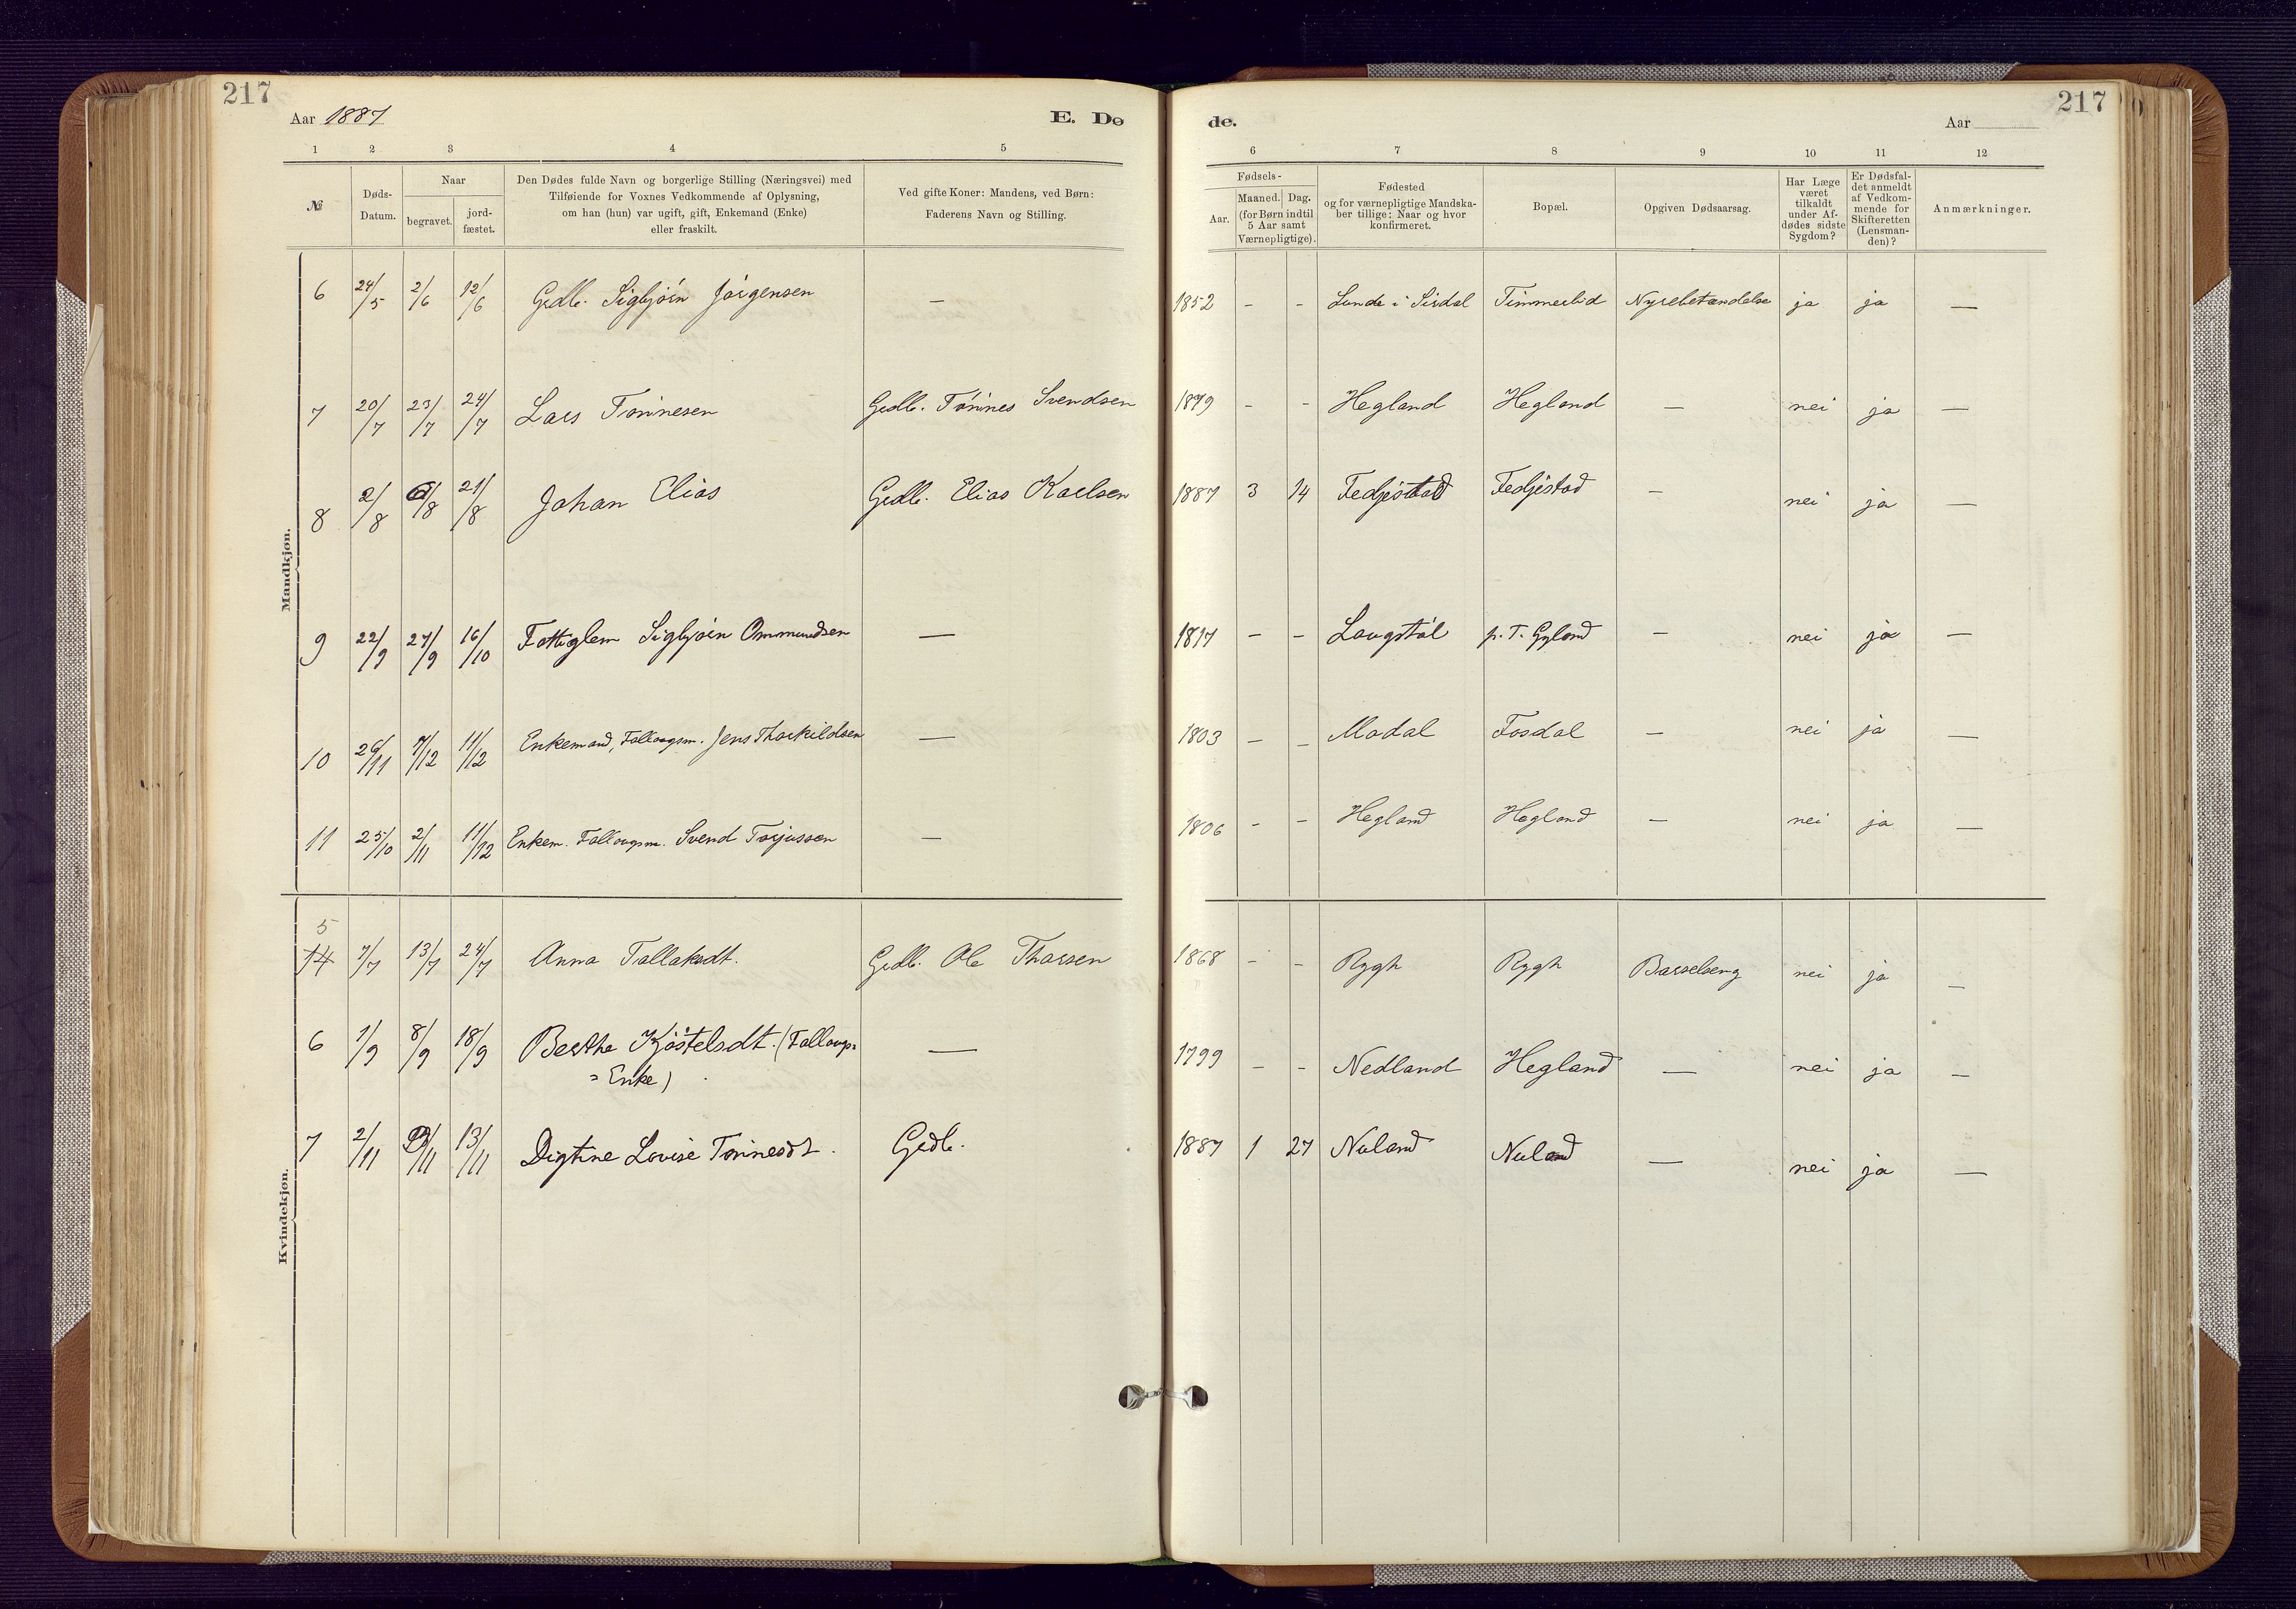 217
Aar 1887
E. Dø
1 2 3 4 5
№
Døds-
Datum.
Naar
begravet.
jord-
fæstet.
Den Dødes fulde Navn og borgerlige Stilling (Næringsvei) med
Tilføiende for Voxnes Vedkommende af Oplysning,
om han (hun) var ugift, gift, Enkemand (Enke)
eller fraskilt.
Ved gifte Koner: Mandens, ved Børn:
Faderens Navn og Stilling.
Mandkjøn.
6 24/5 2/6 12/6 Gdbr. Sigbjörn Jörgensen —
7 20/7 23/7 24/7 Lars Tönnesen Gdbr. Tönnes Svendsen
8 2/8 6/8 21/8 Johan Elias Gdbr. Elias Karlsen
9 22/9 27/9 16/10 Fattiglem Sigbjörn Ommundsen —
10 26/11 7/12 11/12 Enkemand, Follaugsm. Jens Thorkildsen —
11 25/10 2/11 11/12 Enkem. Follaugsm. Svend Torjussen —
Kvindekjøn.
5
14 7/7 13/7 24/7 Anna Tallaksdt. Gdbr. Ole Thorsen
6 1/9 8/9 18/9 Berthe Kjöstelsdt. (Follaugs= —
= Enke)
7 2/11 /11 13/11 Digtine Lovise Tönnesdt. Gdbr.
217
de.
Aar
6 7 8 9 10 11 12
Fødsels-
Aar.
Maaned. Dag.
(for Børn indtil
5 Aar samt
Værnepligtige).
Fødested
og for værnepligtige Mandska-
ber tillige: Naar og hvor
konfirmeret.
Bopæl.
Opgiven Dødsaarsag.
Har Læge
været
tilkaldt
under Af-
dødes sidste
Sygdom?
Er Dødsfal-
det anmeldt
af Vedkom-
mende for
Skifteretten
(Lensman-
den)?
Anmærkninger.
1852 - - Lunde i Sirdal Timmerlid Nyrebetændelse ja ja —
1879 - - Hegland Hegland — nei ja —
1887 3 14 Fedjestad Fedjestad — nei ja —
1817 - - Laugstöl p. T. Gyland — nei ja —
1803 - - Modal Fosdal — nei ja —
1806 - - Hegland Hegland — nei ja —
1868 - - Rygh Rygh Barselseng nei ja —
1799 - - Nedland Hegland — nei ja —
1887 1 27 Nuland Nuland — nei ja —